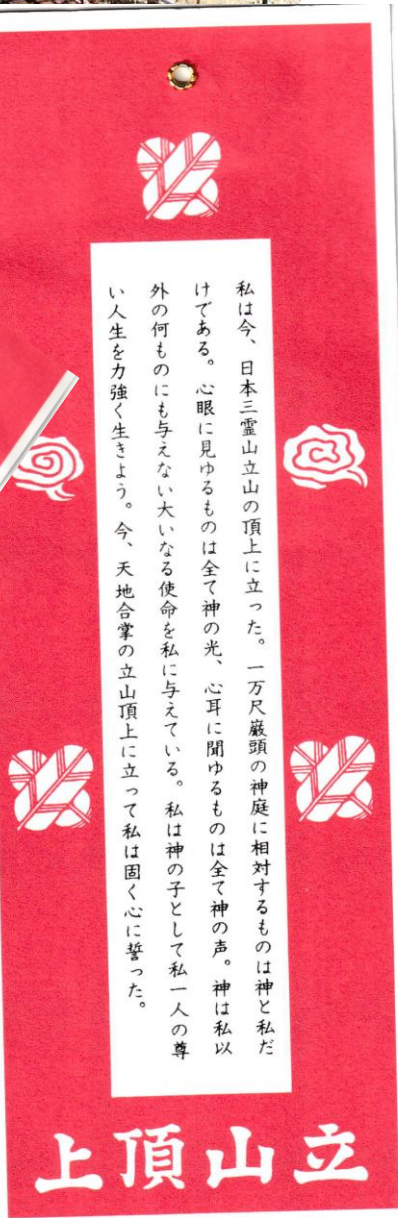 私は今、日本三霊山立山の頂上に立った。一万尺巌頭の神庭に相対するものは神と私だ
けである。心眼に見ゆるものは全て神の光、心耳に聞ゆるものは全て神の声。神は私以
外の何ものにも与えない大いなる使命を私に与えている。私は神の子として私一人の尊
い人生を力強く生きよう。今、天地合掌の立山頂上に立って私は固く心に誓った。
上頂山立